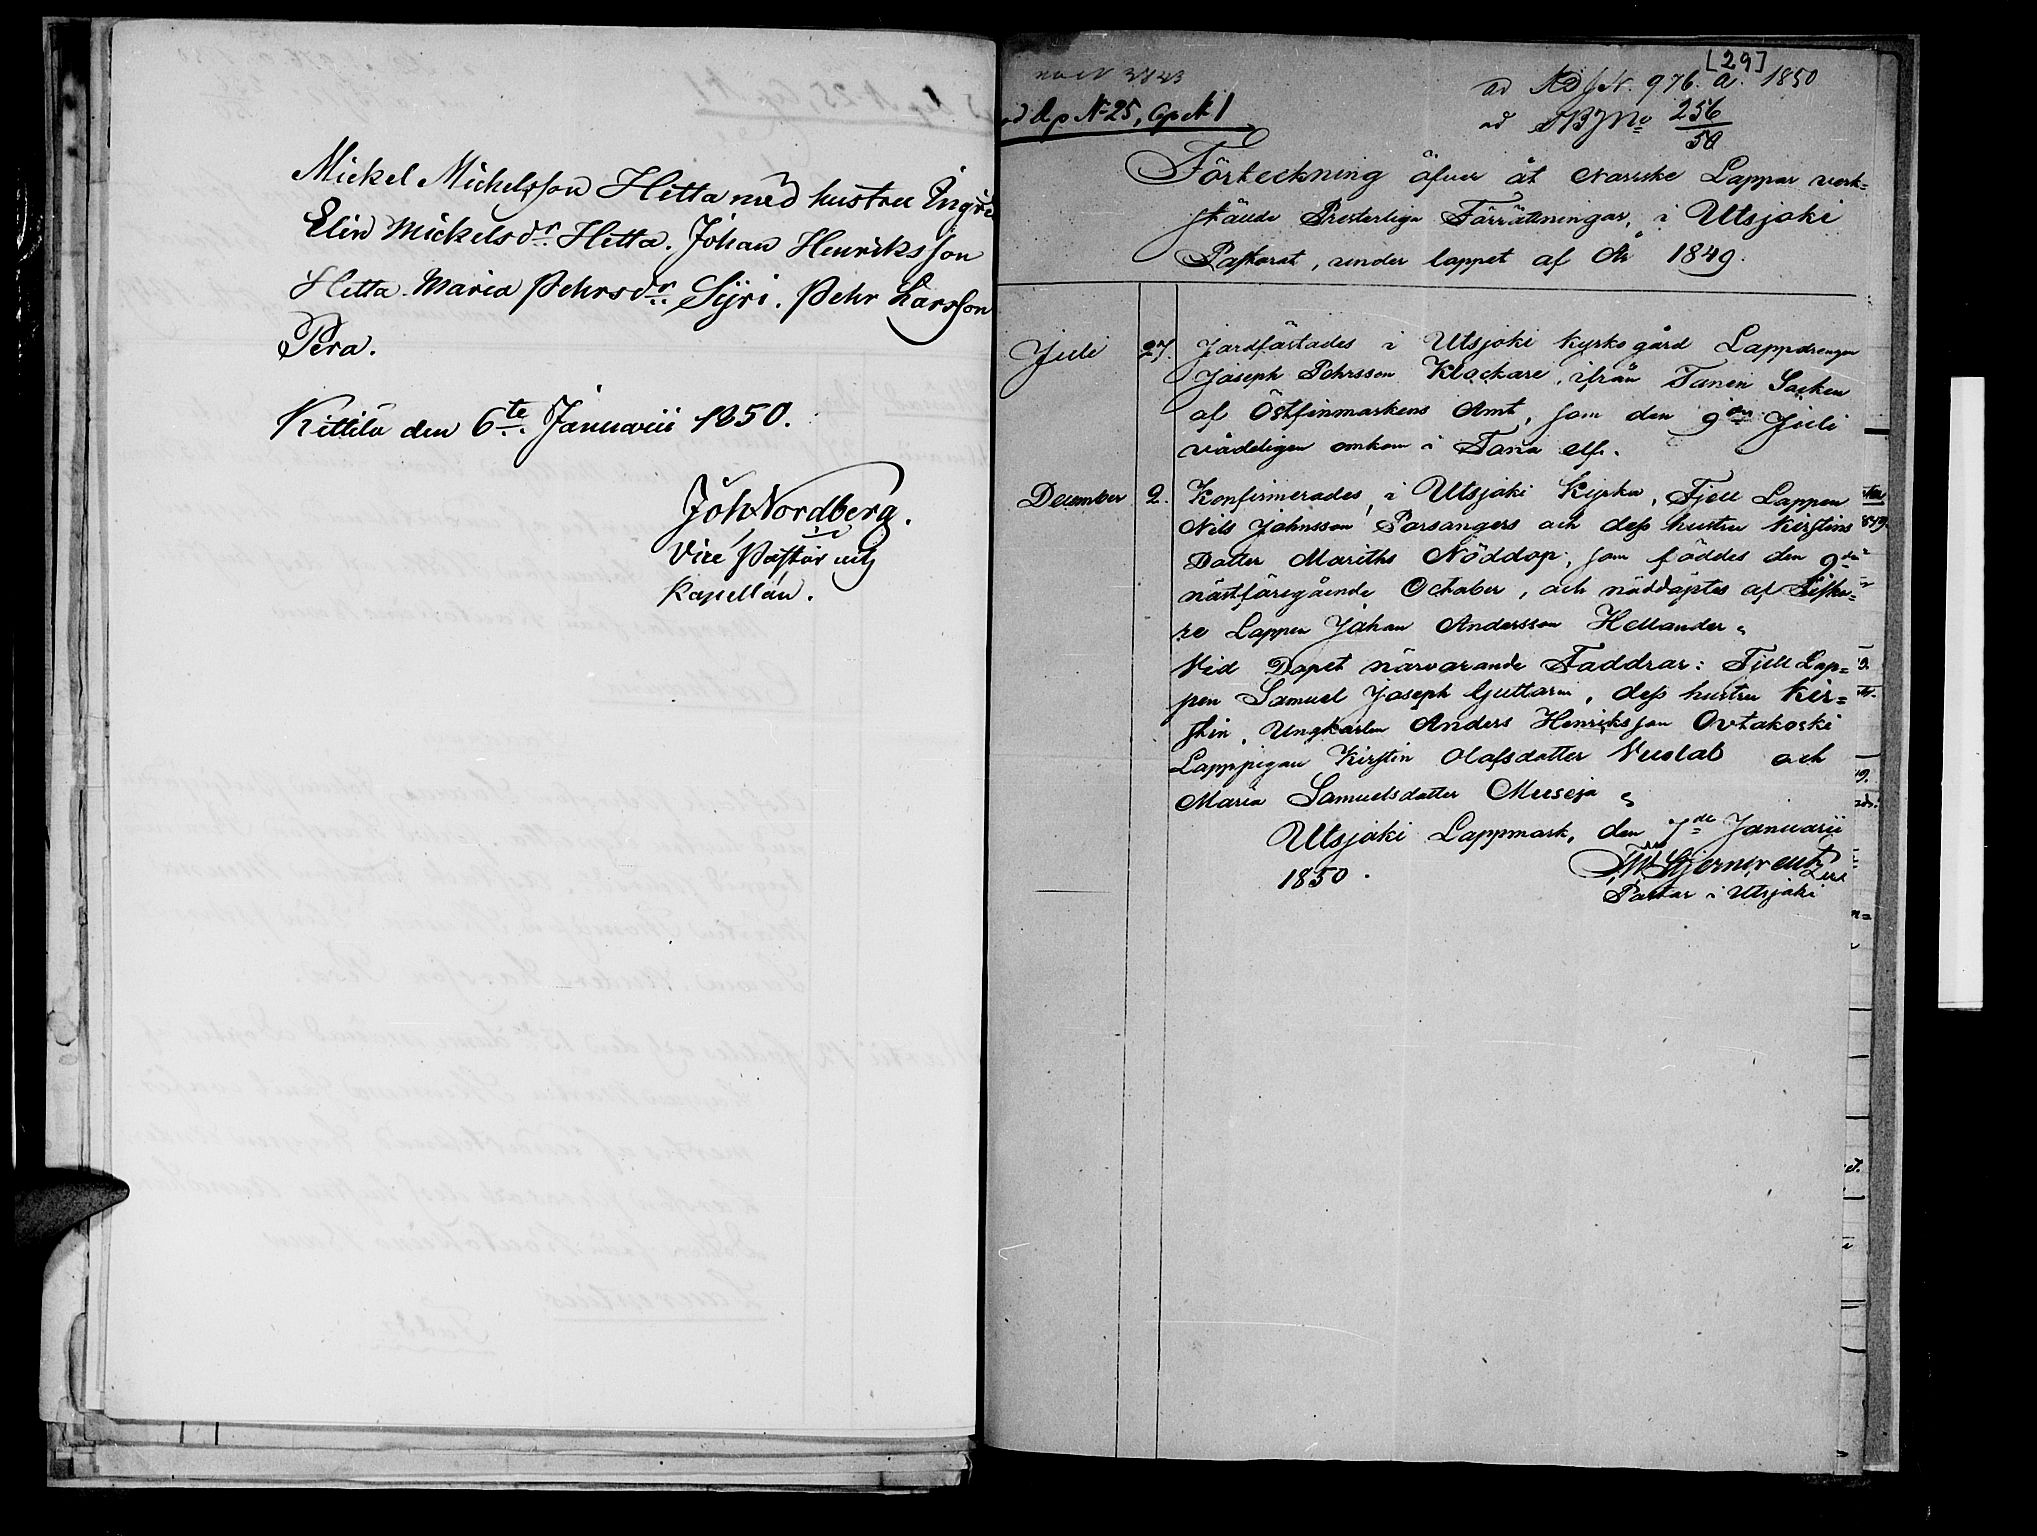 Mickel Michelsson Hetta med hustru Ingri
Elin Mickelsdr. Hetta. Johan Henriksson
Hetta. Maria Pehrsdr. Syri. Pehr Larsson
Pera.
Kittilä den 6te Januarii 1850.
Joh Nordberg.
Vice Pastor och
Kapellan.
[29]
ad Ap N 25, Cp N 1
ad AdJN. 976. a. 1850
ad SBJNo 256/50
Förteckning öfver åt Norske Lappar verk=
stälde Presterliga Förrättningar, i Utsjoki
Pastorat, under loppet af År 1849.
Juli 27. Jordfästades i Utsjoki kyrkogård Lappdrengen
Joseph Pehrsson Klockare, ifrån Tanen Socken
af Östfinmarkens Amt, som den 9de Juli
vådeligen omkom i Tana elf.
December 2. Konfirmerades, i Utsjoki Kyrka, Fjell Lappen
Nils Johnsson Porsangers och dess hustru Kirstins
Datter Mariths Nöddop, som föddes den 9de
nästföregående October, och nöddöptes af Fiska=
re Lappen Johan Andersson Hellander.
Vid Dopet närvarande Faddrar: Fjell Lap=
pen Samuel Joseph Guttarm, dess hustru Kir=
stin, Ungkarlen Anders Henriksson Ovtakoski
Lapppigan Kirstin Olafsdatter Vuolab och
Maria Samuelsdatter
Utsjoki Lappmark, den 7de Januarii
1850.
Stjerncreutz
Pastor i Utsjoki